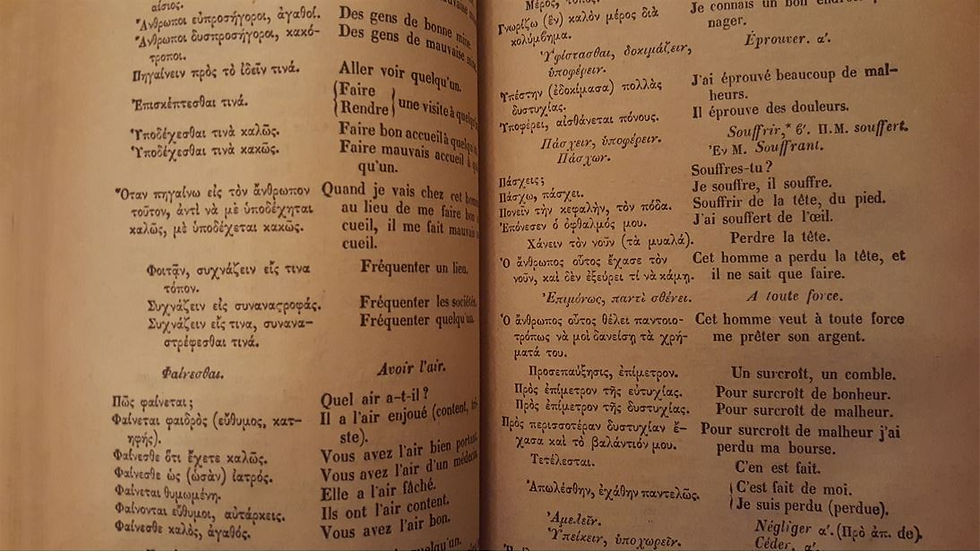 αἴσιος.
Ἄνθρωποι εὐπροσήγοροι, ἀγαθοί.
Ἄνθρωποι δυσπροσήγοροι, κακό-
τροποι.
Πηγαίνειν πρὸς τὸ ἰδεῖν τινά.
Ἐπισκέπτεσθαι τινά.
Ὑποδέχεσθαι τινὰ καλῶς.
Ὑποδέχεσθαι τινὰ κακῶς.
Ὅταν πηγαίνω εἰς τὸν ἄνθρωπον
τοῦτον, ἀντὶ νὰ μὲ ὑποδέχηται
καλῶς, μὲ ὑποδέχεται κακῶς.
Φοιτᾷν, συχνάζειν εἴς τινα
τόπον.
Συχνάζειν εἰς συναναστροφάς.
Συχνάζειν εἴς τινα, συνανα-
στρέφεσθαι τινά.
Φαίνεσθαι.
Πῶς φαίνεται;
Φαίνεται φαιδρὸς (εὔθυμος, κατ-
ηφής).
Φαίνεσθε ὅτι ἔχετε καλῶς.
Φαίνεσθε ὡς (ὡσὰν) ἰατρός.
Φαίνεται θυμωμένη.
Φαίνονται εὔθυμοι, αὐτάρκεις.
Φαίνεσθε καλὸς, ἀγαθός.
Des gens de bonne mine.
Des gens de mauvaise
Aller voir quelqu'un.
Faire
Rendre } une visite à
Faire bon accueil à
Faire mauvais accueil à
qu'un.
Quand je vais chez cet
au lieu de me faire bon
cueil, il me fait mauvais
cueil.
Fréquenter un lieu.
Fréquenter les sociétés.
Fréquenter quelqu'un.
Avoir l'air.
Quel air a-t-il?
Il a l'air enjoué (content,
ste).
Vous avez l'air bien
Vous avez l'air d'un médecin.
Elle a l'air fâché.
Ils ont l'air content.
Vous avez l'air bon.
Μέρος, τόπος.
Γνωρίζω (ἓν) καλὸν μέρος διὰ
κολύμβημα.
Ὑφίστασθαι, δοκιμάζειν,
ὑποφέρειν.
Ὑπέστην (ἐδοκίμασα) πολλὰς
δυστυχίας.
Ὑποφέρει, αἰσθάνεται πόνους.
Πάσχειν, ὑποφέρειν.
Πάσχων.
Πάσχεις;
Πάσχω, πάσχει.
Πονεῖν τὴν κεφαλὴν, τὸν πόδα.
Ἐπόνεσεν ὁ ὀφθαλμός μου.
Χάνειν τὸν νοῦν (τὰ μυαλά).
Ὁ ἄνθρωπος οὗτος ἔχασε τὸν
νοῦν, καὶ δὲν ἐξεύρει τί νὰ κάμῃ.
Ἐπιμόνως, παντὶ σθένει.
Ὁ ἄνθρωπος οὗτος θέλει παντοιο-
τρόπως νὰ μοὶ δανείσῃ τὰ χρή-
ματά του.
Προσεπαύξησις, ἐπίμετρον.
Πρὸς ἐπίμετρον τῆς εὐτυχίας.
Πρὸς ἐπίμετρον τῆς δυστυχίας.
Πρὸς περισσοτέραν δυστυχίαν ἔ-
χασα καὶ τὸ βαλάντιόν μου.
Τετέλεσται.
Ἀπωλέσθην, ἐχάθην παντελῶς.
Ἀμελεῖν.
Ὑπείκειν, ὑποχωρεῖν.
Je connais un bon
nager.
Éprouver. α'.
J'ai éprouvé beaucoup de mal-
heurs.
Il éprouve des douleurs.
Souffrir,* 6'. Π.Μ. souffert.
Ἐν Μ. Souffrant.
Souffres-tu?
Je souffre, il souffre.
Souffrir de la tête, du pied.
J'ai souffert de l'œil.
Perdre la tête.
Cet homme a perdu la tête, et
il ne sait que faire.
A toute force.
Cet homme veut à toute force
me prêter son argent.
Un surcroît, un comble.
Pour surcroît de bonheur.
Pour surcroît de malheur.
Pour surcroît de malheur j'ai
perdu ma bourse.
C'en est fait.
C'est fait de moi.
Je suis perdu (perdue).
Négliger α'. (Πρὸ ἀπ. de).
Céder, α'.